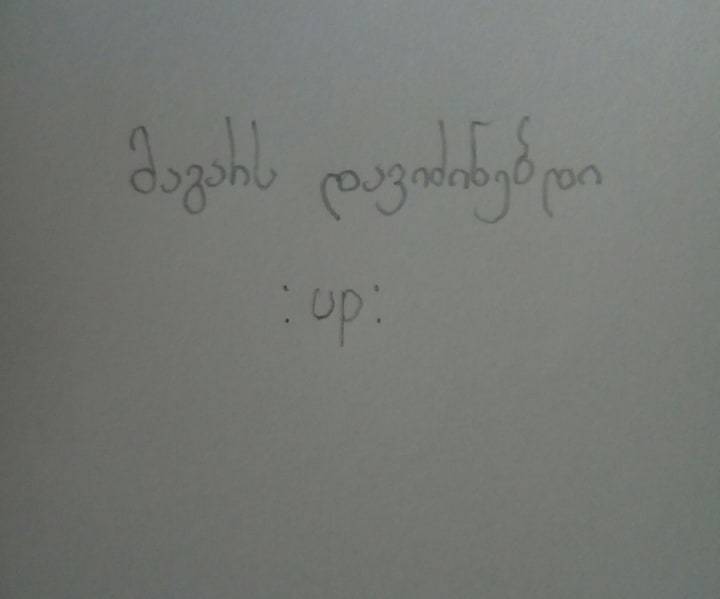 მაგარს დავიძინებდი
:up: